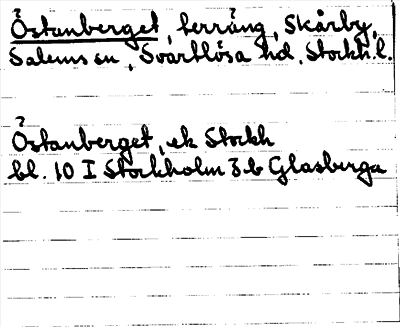 Östanberget, terräng, Skårby,
Salems sn, Svartlösa hd, Stockh. l.
Östanberget, ek Stockh
bl. 10 I Stockholm 3 b Glasberga